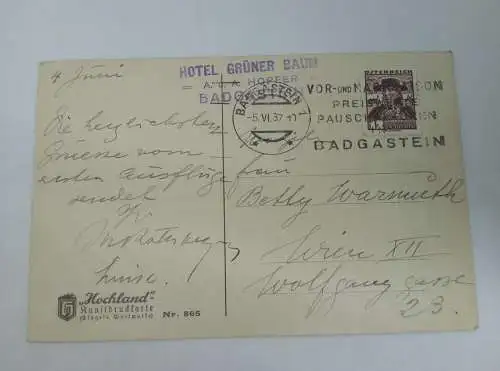 4 Juni
HOTEL GRÜNER BAUM
A. u. A HOPFER
BADGASTEIN
BADGASTEIN 1
-5.VI.37
VOR- UND
PREIS
PAUSCH
BADGASTEIN
ÖSTERREICH
Die herzlichsten
Grüsse vom
ersten Ausfluge
sendet
Luise.
Frau
Betty Warmuth
Wien XII
Wolfganggasse
23.
„Hochland"
Kunstdruckkarte
Nr. 865